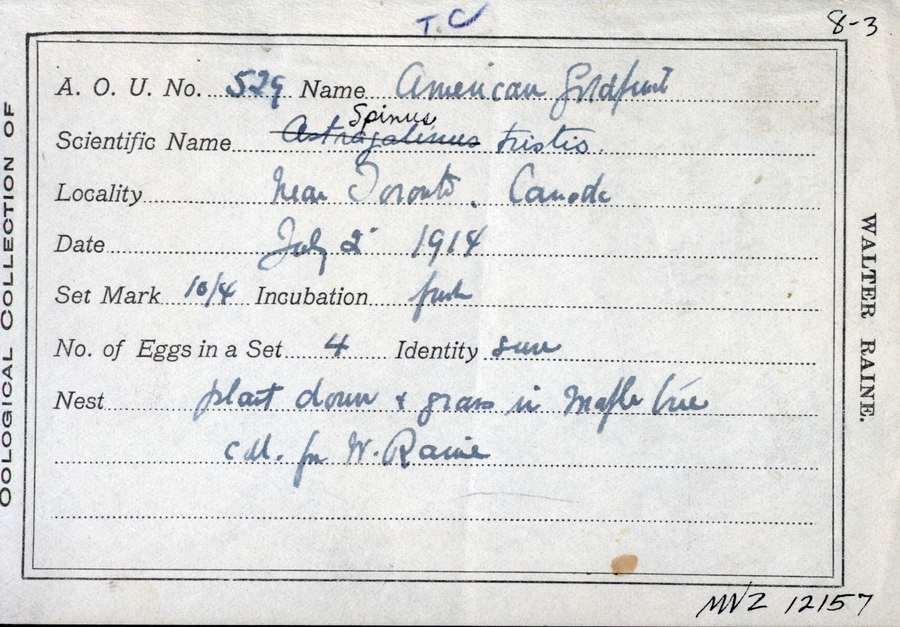 T.C
8-3
A. O. U. No. 529 Name American Goldfinch
Spinus
Scientific Name Astragalinus tristis.
Locality Near Toronto. Canada
Date July 2 1914
Set Mark 10/4 Incubation fresh
No. of Eggs in a Set 4 Identity sure
Nest plant down & grass in Maple tree
coll. for W. Raine
OOLOGICAL COLLECTION OF
WALTER RAINE.
MVZ 12157